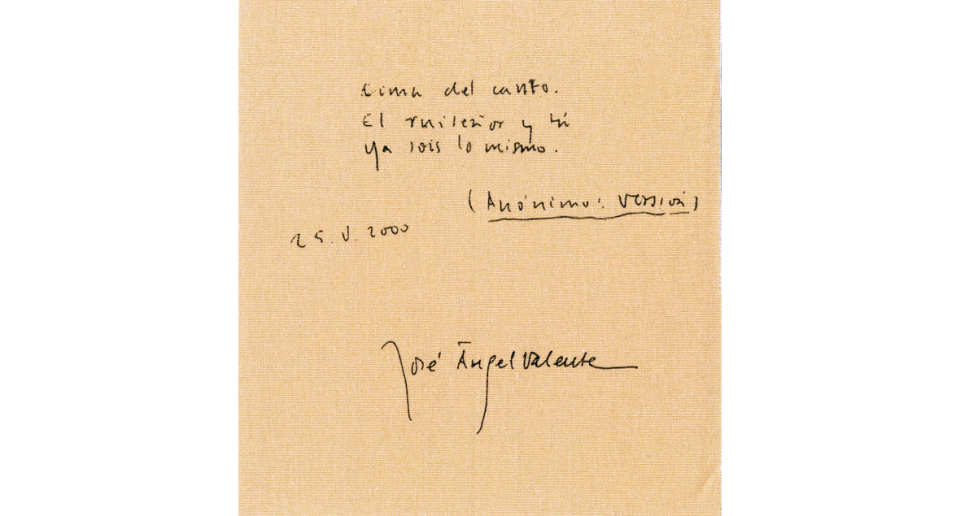 Cima del canto.
El ruiseñor y tú
ya sois lo mismo.
(Anónimo: versión)
25.V.2000
José Ángel Valente